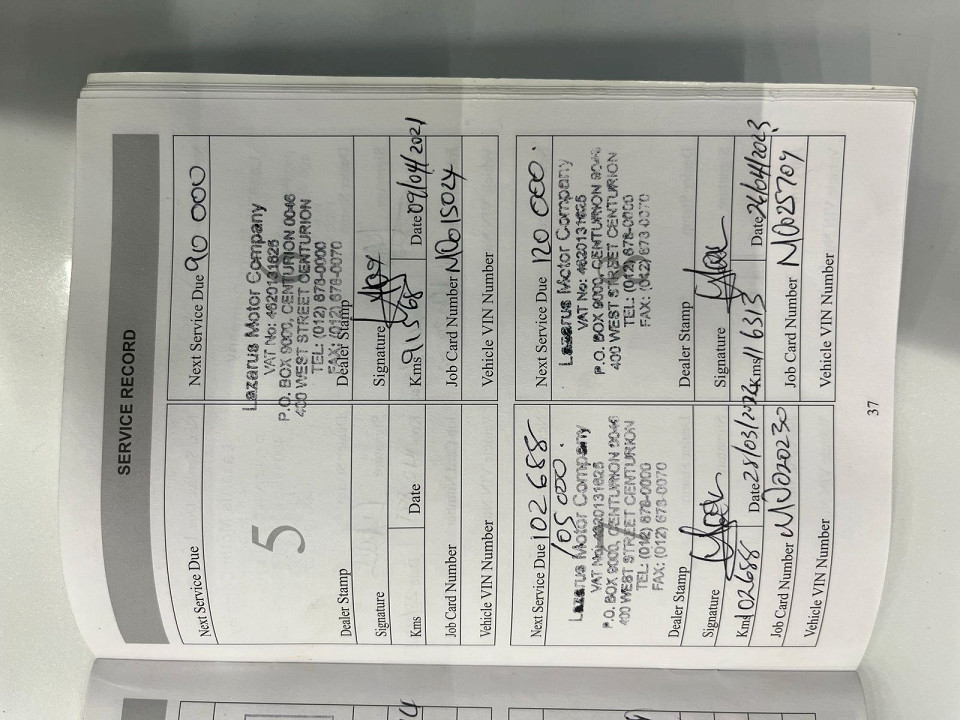 SERVICE RECORD
Next Service Due
5
Dealer Stamp
Signature
Kms
Date
Job Card Number
Vehicle VIN Number
Next Service Due 90 000
Lazarus Motor Company
VAT No: 4620131625
P.O. BOX 9000, CENTURION 0046
400 WEST STREET CENTURION
TEL: (012) 678-0000
FAX: (012) 678-0070
Dealer Stamp
Signature
Kms
Date 09/04/2021
Job Card Number ND015024
Vehicle VIN Number
Next Service Due 102688
105 000.
Lazarus Motor Company
VAT No: 4620131625
P.O. BOX 9000, CENTURION 0046
400 WEST STREET CENTURION
TEL: (012) 678-0000
FAX: (012) 678-0070
Dealer Stamp
Signature
Kms 102688
Date 28/03/2022
Job Card Number ND020230
Vehicle VIN Number
Next Service Due 120 000.
Lazarus Motor Company
VAT No: 4620131625
P.O. BOX 9000, CENTURION 0046
400 WEST STREET CENTURION
TEL: (012) 678-0000
FAX: (012) 678-0070
Dealer Stamp
Signature
Kms 116313
Date 26/04/2023
Job Card Number ND025709
Vehicle VIN Number
37